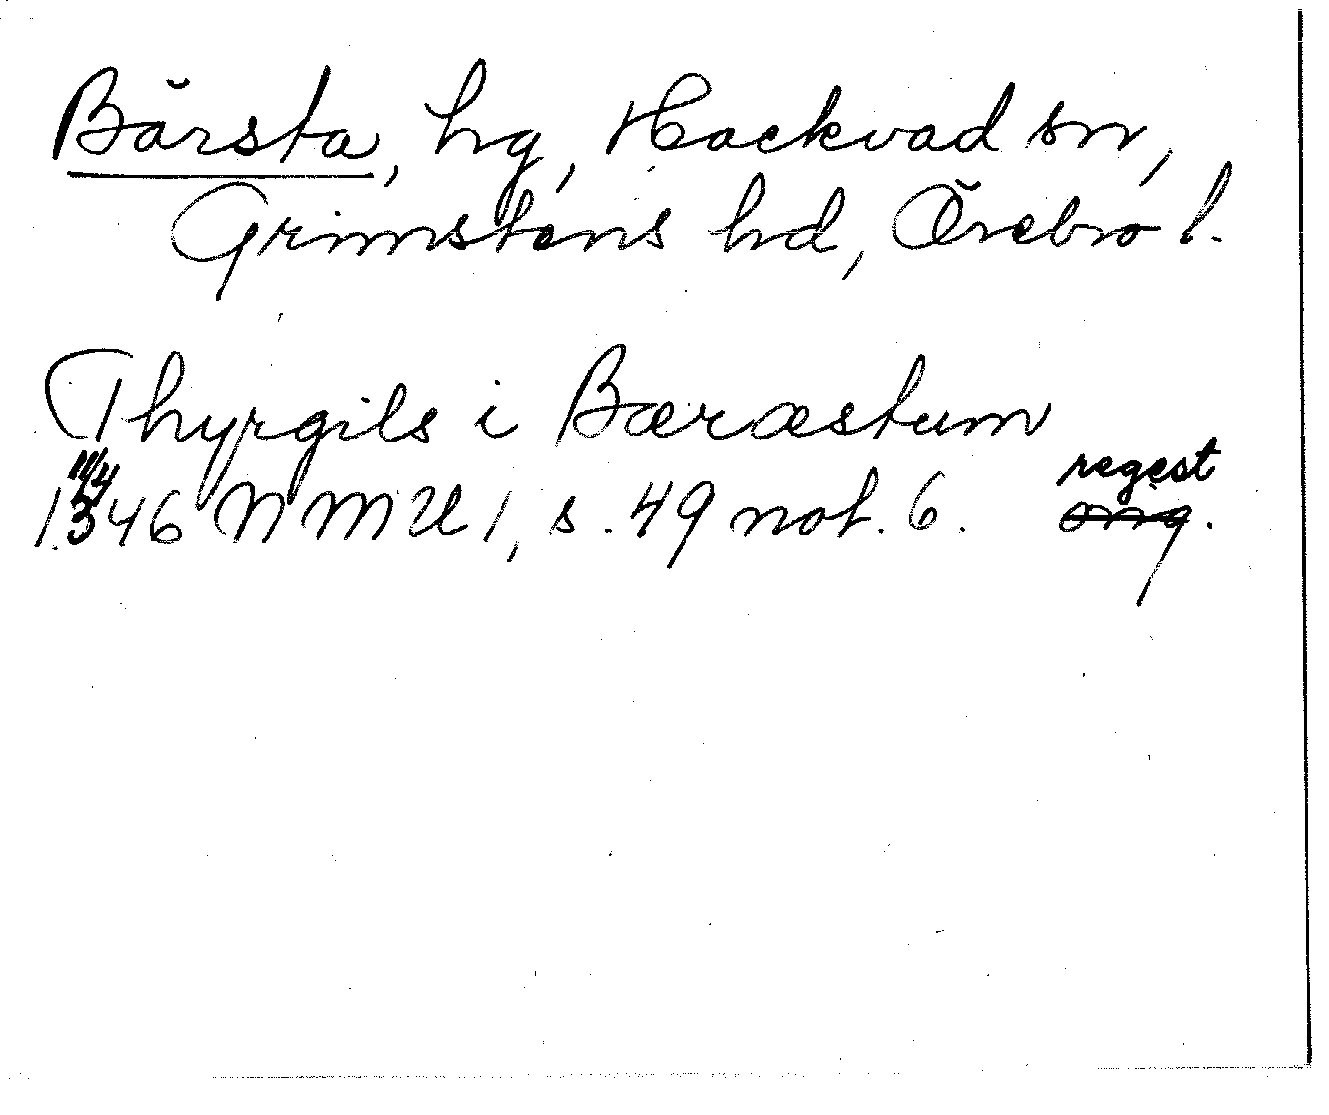 Bärsta, hg, Hackvad sn,
Grimstens hd, Örebro l.
Thyrgils i Bæræstum
11/4
regest
1346 NMU 1, s. 49 not. 6. orig.